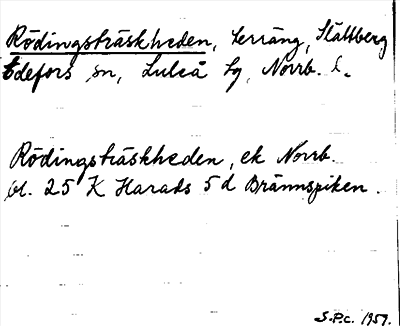 Rödingsträskheden, terräng, Slättberg
Edefors sn, Luleå tg, Norrb. l.
Rödingsträskheden, ek Norrb.
bl. 25 K Harads 5 d Brännspiken.
S.P.C. 1957.